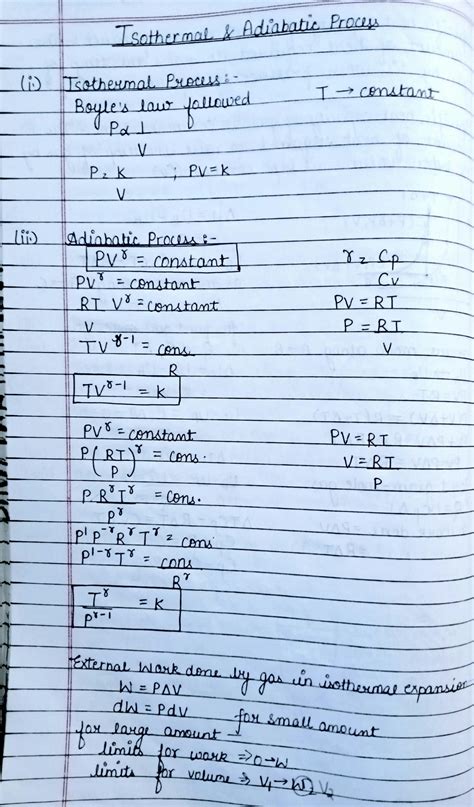 Isothermal & Adiabatic Process
(i) Isothermal Process :-
Boyle's law followed T → constant
P ∝ 1/V
P = K/V ; PV = K
(ii) Adiabatic Process :-
PV^γ = constant γ = Cp/Cv
PV^γ = constant
RT/V V^γ = constant PV = RT
TV^γ-1 = cons./R P = RT/V
TV^γ-1 = K
PV^γ = constant PV = RT
P(RT/P)^γ = cons. V = RT/P
P R^γ T^γ/P^γ = cons.
P^1 P^-γ R^γ T^γ = cons
P^1-γ T^γ = cons/R^γ
T^γ/P^γ-1 = K
External Work done by gas in isothermal expansion
W = PΔV
dW = PdV for small amount
for large amount
limits for work ⇒ 0 → W
limits for volume ⇒ V1 → V2